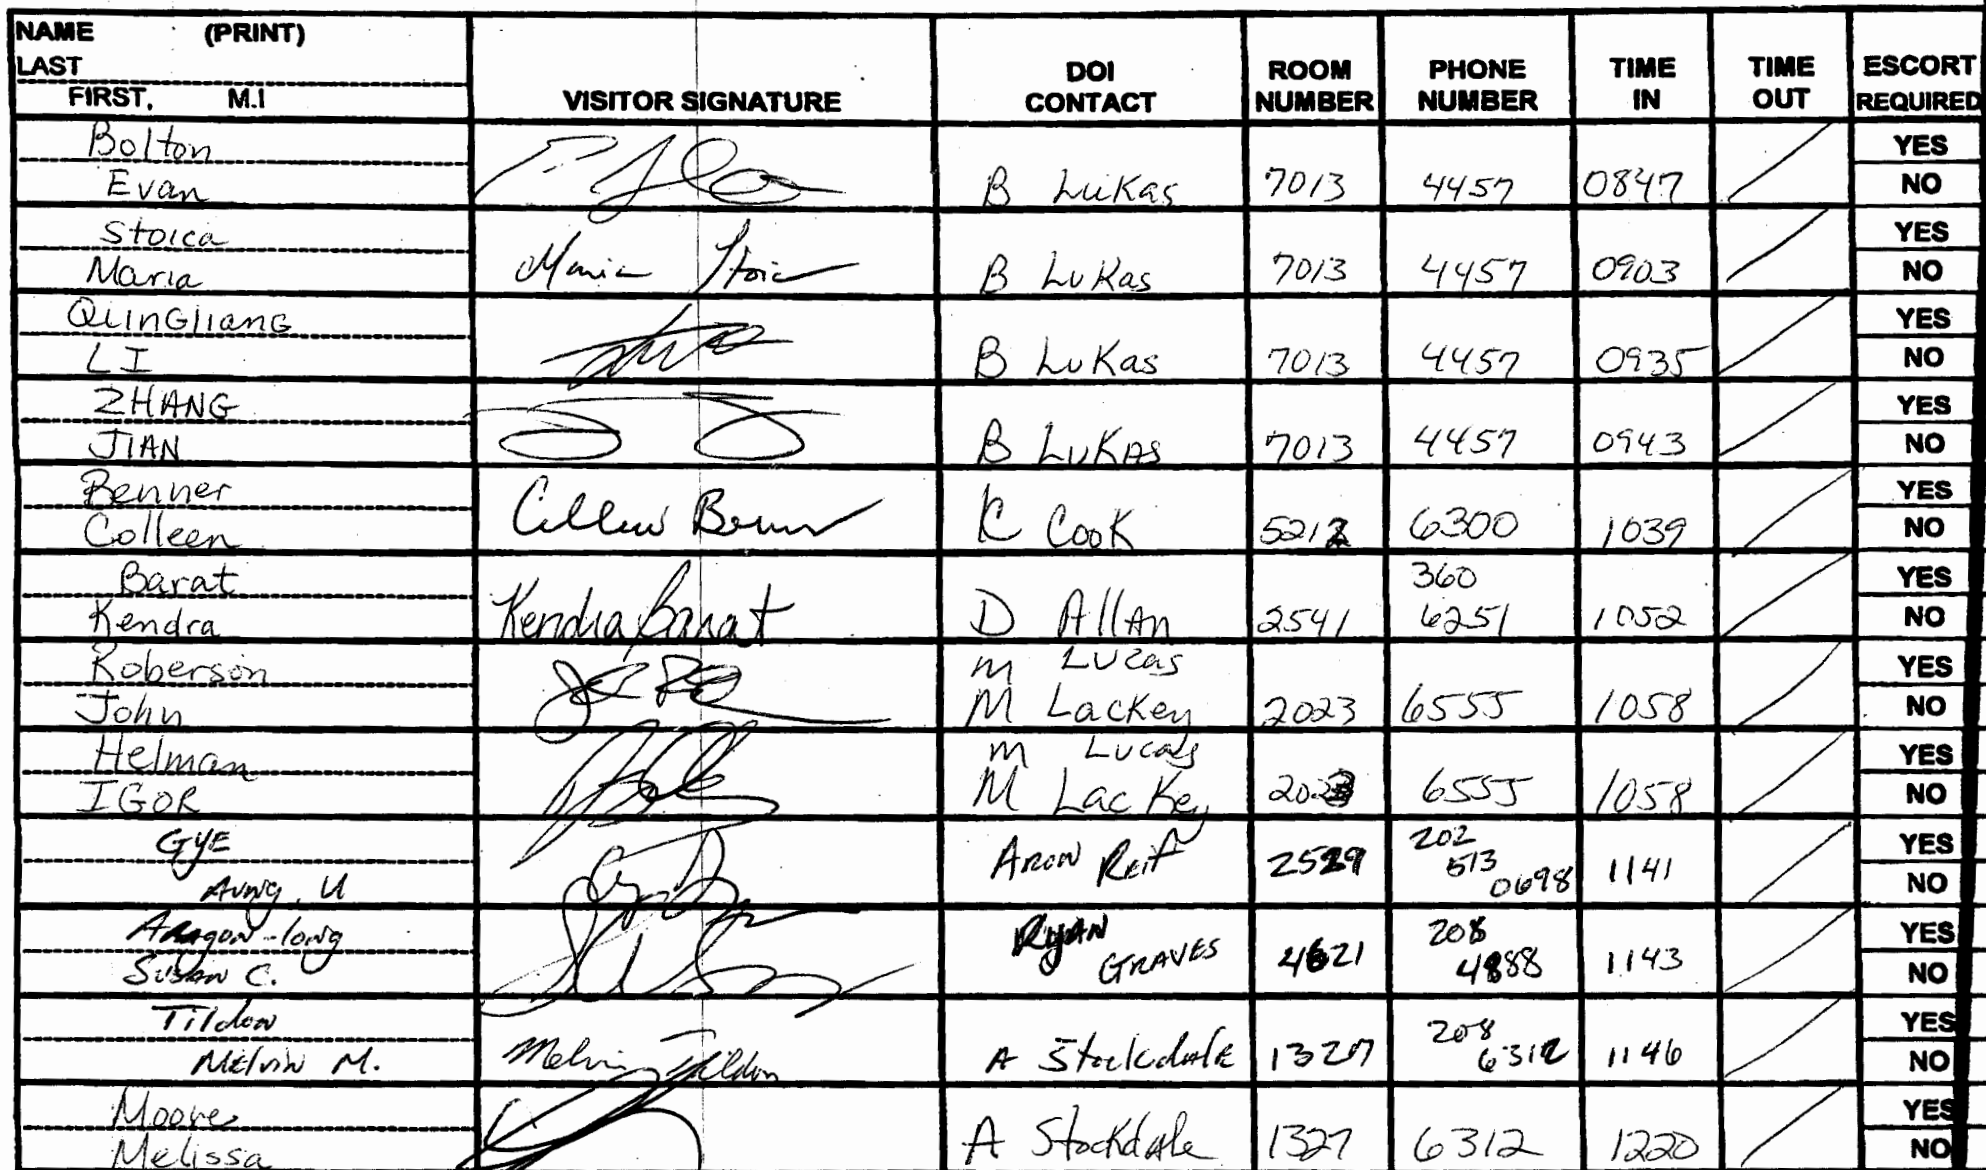 NAME (PRINT)
LAST
FIRST, M.I
VISITOR SIGNATURE
DOI CONTACT
ROOM NUMBER
PHONE NUMBER
TIME IN
TIME OUT
ESCORT REQUIRED
Bolton YES
Evan B Lukas 7013 4457 0847 NO
Stoica YES
Maria Maria Stoica B Lukas 7013 4457 0903 NO
QIINGlIANG YES
LI B Lukas 7013 4457 0935 NO
ZHANG YES
JIAN B LUKAS 7013 4457 0943 NO
Benner YES
Colleen Colleen Benner K Cook 5212 6300 1039 NO
Barat 360 YES
Kendra Kendra Barat D Allan 2541 6251 1052 NO
Roberson M Lucas YES
John M Lackey 2023 6555 1058 NO
Helman M Lucas YES
IGOR M Lackey 2023 6555 1058 NO
GYE 202 YES
Aung, U Aron Reif 2529 513 0698 1141 NO
Aragon-long Ryan 208 YES
Susan C. GRAVES 4621 4888 1143 NO
Tildon 208 YES
Melvin M. Melvin Tildon A Stockdale 1327 6312 1146 NO
Moore YES
Melissa A Stockdale 1327 6312 1220 NO